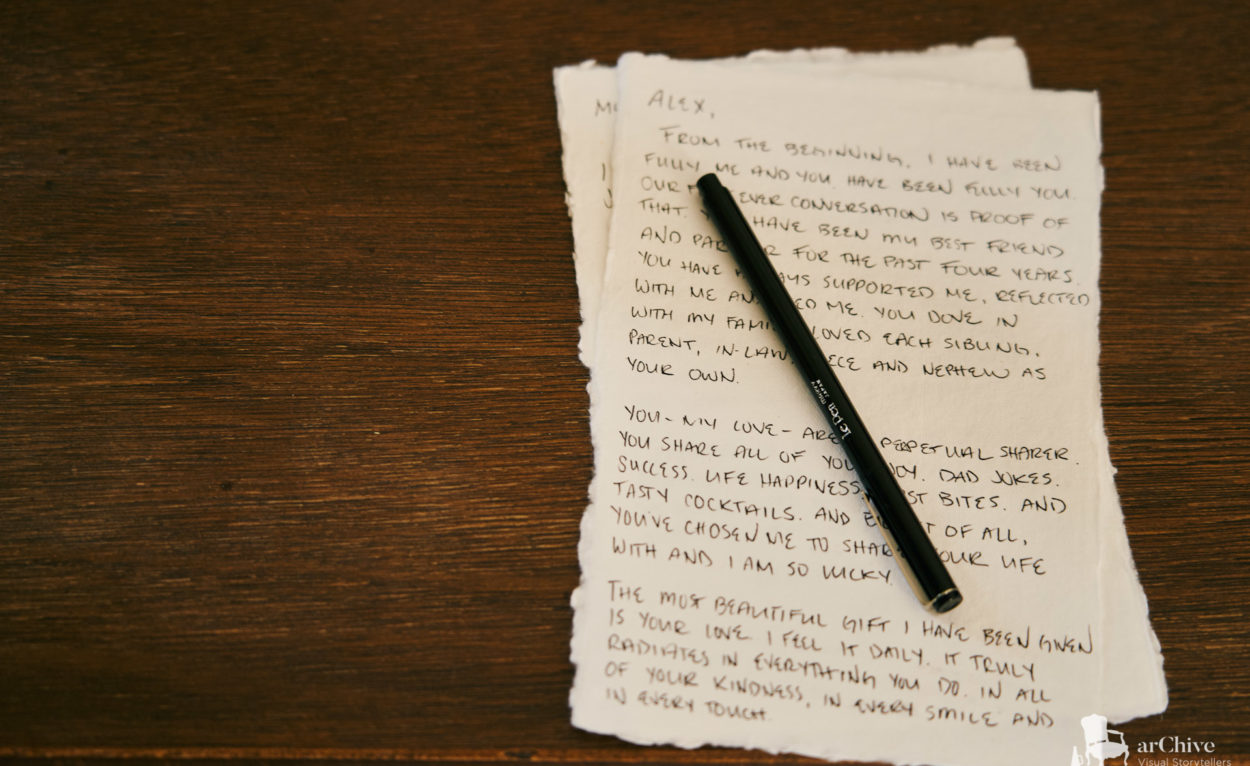 ALEX,
FROM THE BEGINNING, I HAVE BEEN
FULLY ME AND YOU HAVE BEEN FULLY YOU.
OUR EVER CONVERSATION IS PROOF OF
THAT. HAVE BEEN MY BEST FRIEND
AND FOR THE PAST FOUR YEARS.
YOU HAVE SUPPORTED ME, REFLECTED
WITH ME ME. YOU DOVE IN
WITH MY LOVED EACH SIBLING,
PARENT, IN-LAW, AND NEPHEW AS
YOUR OWN.
YOU - MY LOVE - ARE PERPETUAL SHARER.
YOU SHARE ALL OF JOY. DAD JOKES.
SUCCESS. LIFE HAPPINESS. BITES. AND
TASTY COCKTAILS. AND OF ALL,
YOU'VE CHOSEN ME TO SHARE YOUR LIFE
WITH AND I AM SO LUCKY.
THE MOST BEAUTIFUL GIFT I HAVE BEEN GIVEN
IS YOUR LOVE. I FEEL IT DAILY. IT TRULY
RADIATES IN EVERYTHING YOU DO. IN ALL
OF YOUR KINDNESS, IN EVERY SMILE AND
IN EVERY TOUCH.
le Pen
JAPAN
arChive
Visual Storytellers